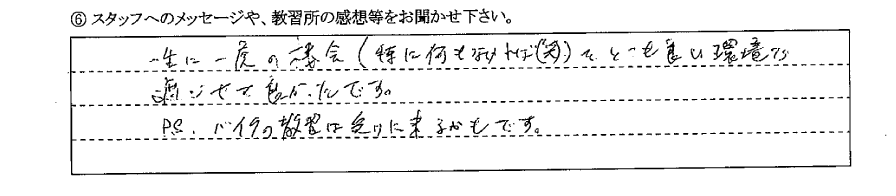 ⑥ スタッフへのメッセージや、教習所の感想等をお聞かせ下さい。
一生に一度の機会(特に何もなければ(笑))をとても良い環境で
過ごせて良かったです。
P.S. バイクの教習は受けに来るかもです。